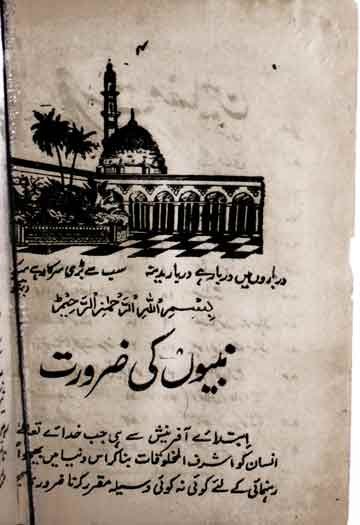 درباروں میں دربار ہے دربارِ مدینہ سب سے بڑی سرکار ہے
بِسْمِ اللہِ الرَّحْمٰنِ الرَّحِیْمِ
نبیوں کی ضرورت
ابتدائے آفرنیش سے ہی جب خدائے
انسان کو اشرف المخلوقات بنا کر اس دنیا میں بھیجا
رہنمائی کے لئے کوئی نہ کوئی وسیلہ مقرر کرنا ضروری